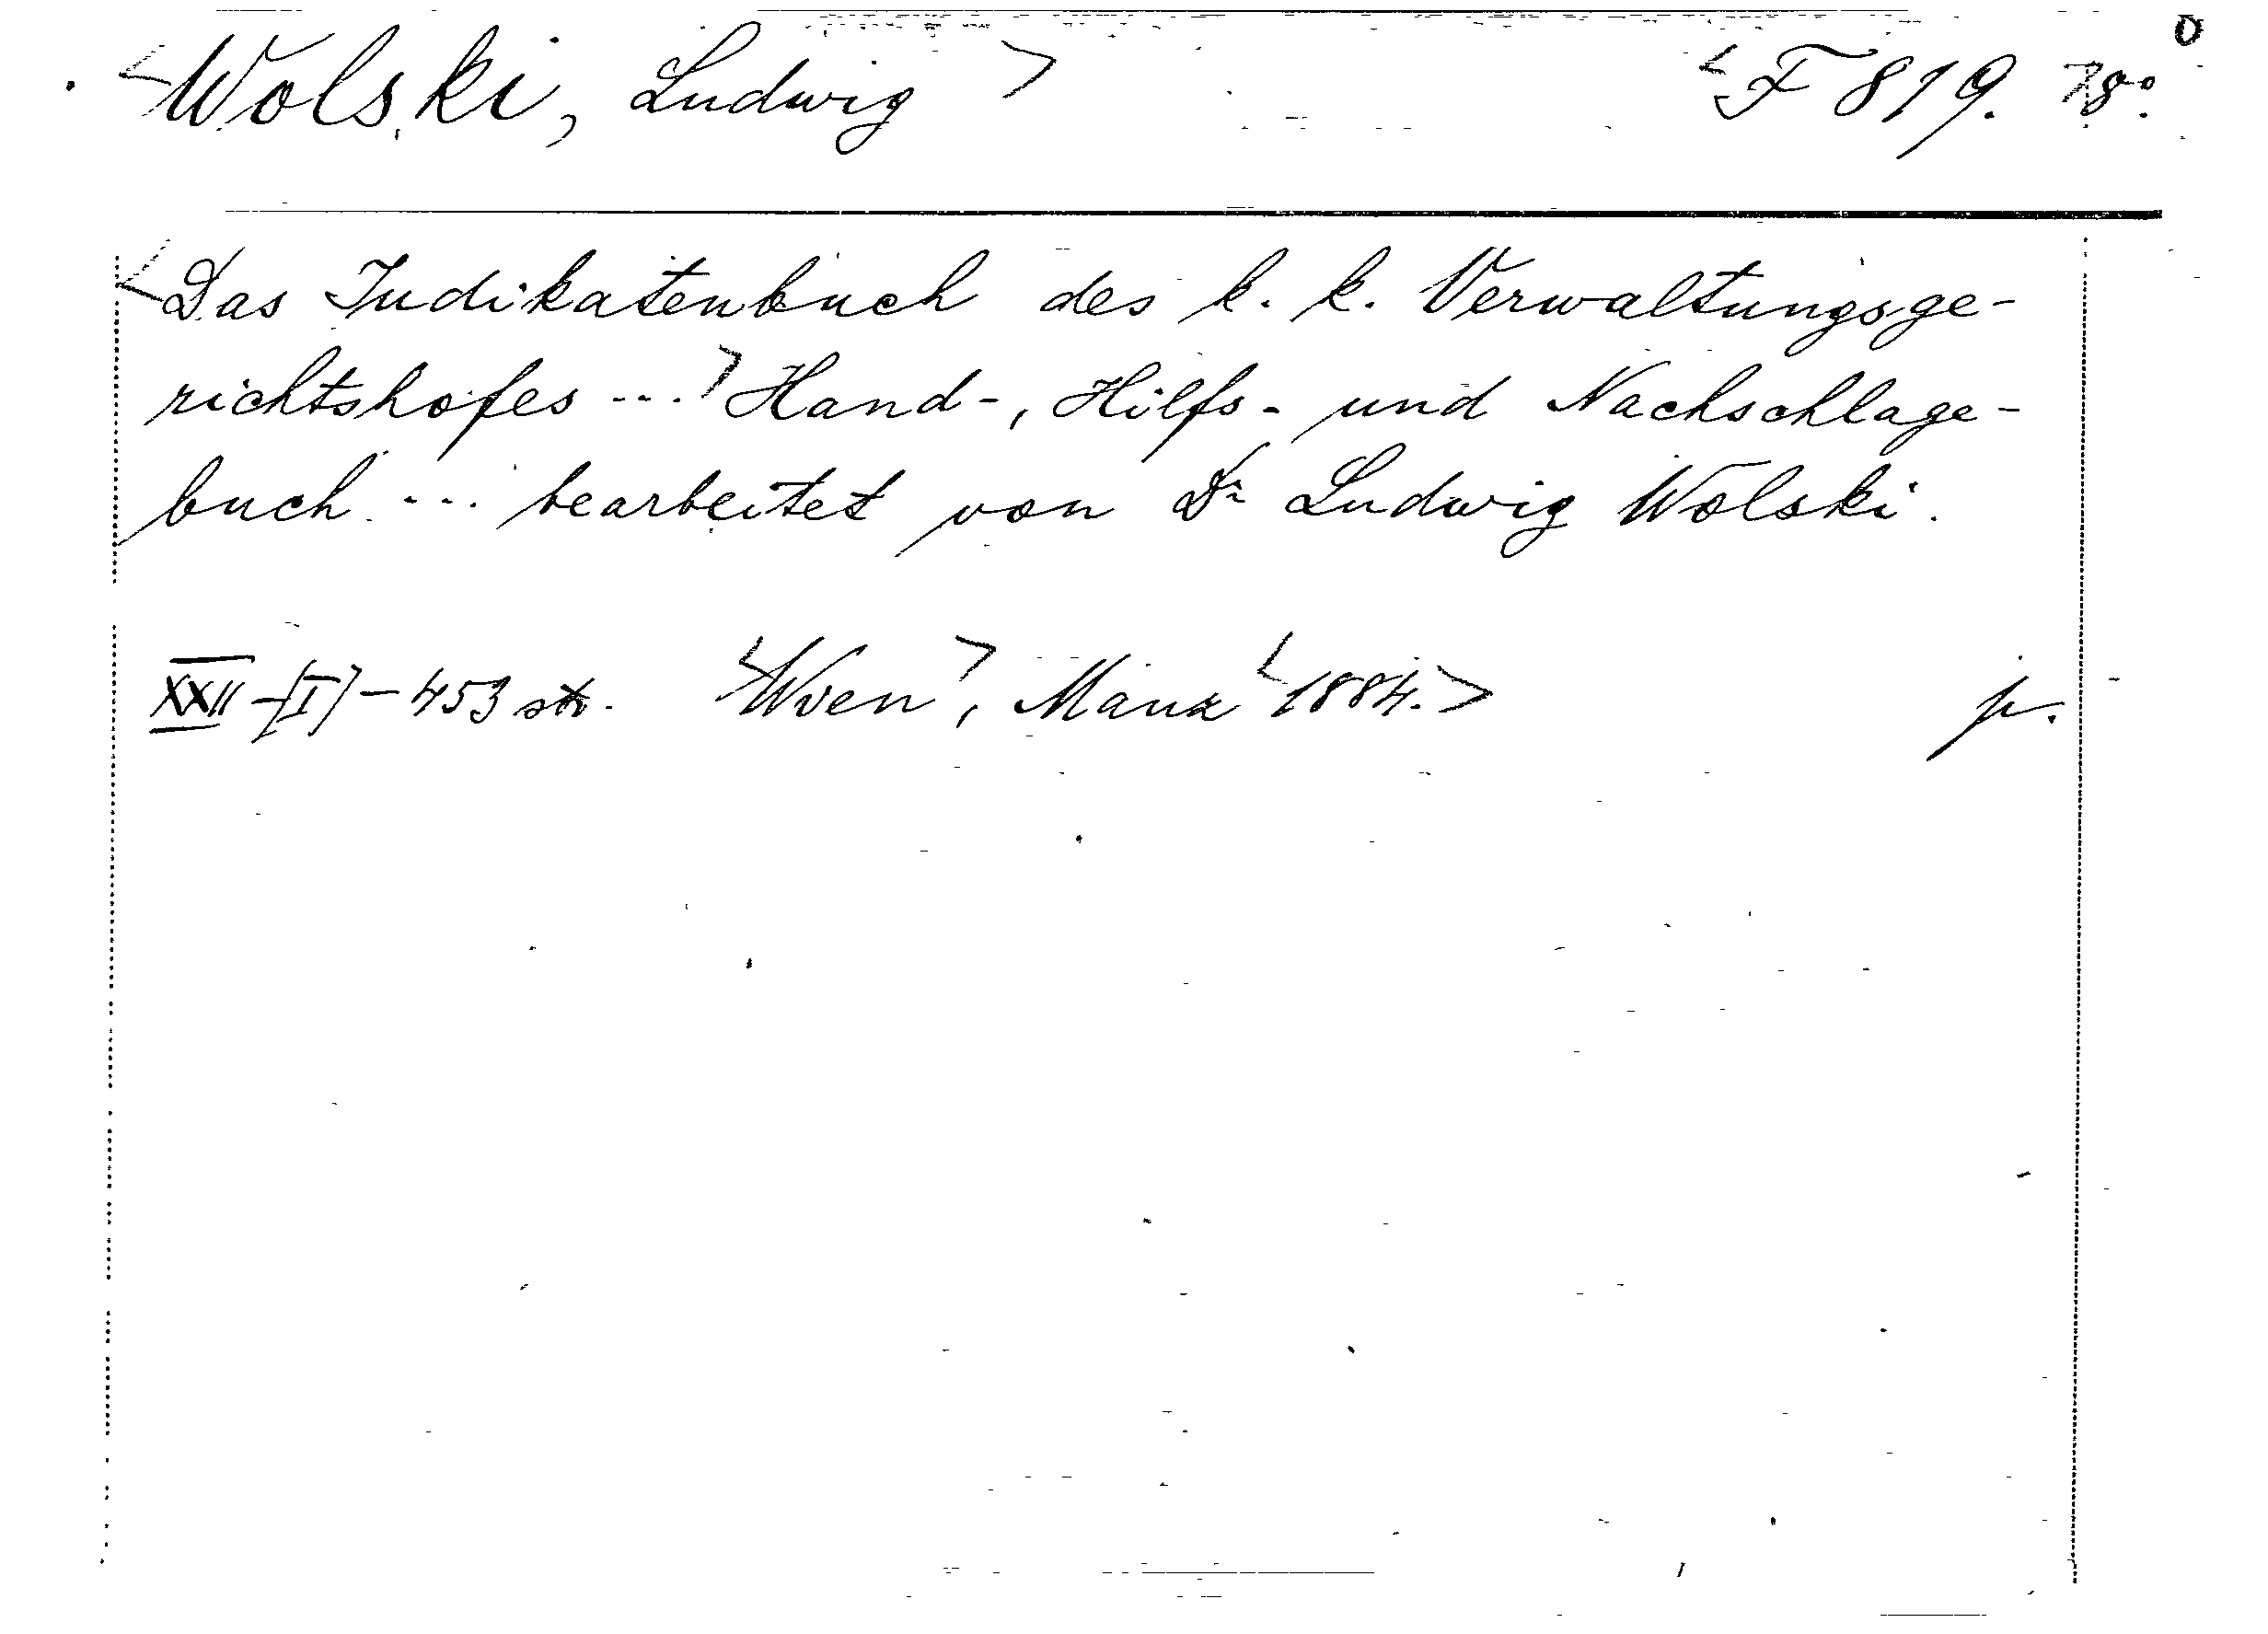 <Wolski, Ludwig> <F 819.> 8°. 0
<Das Judikatenbuch des k. k. Verwaltungsge-
richtshofes ...> Hand-, Hilfs- und Nachschlage-
buch ... bearbeitet von Dr Ludwig Wolski.
XXII-[I]-453 str. <Wien>, Manz <1884.> p.